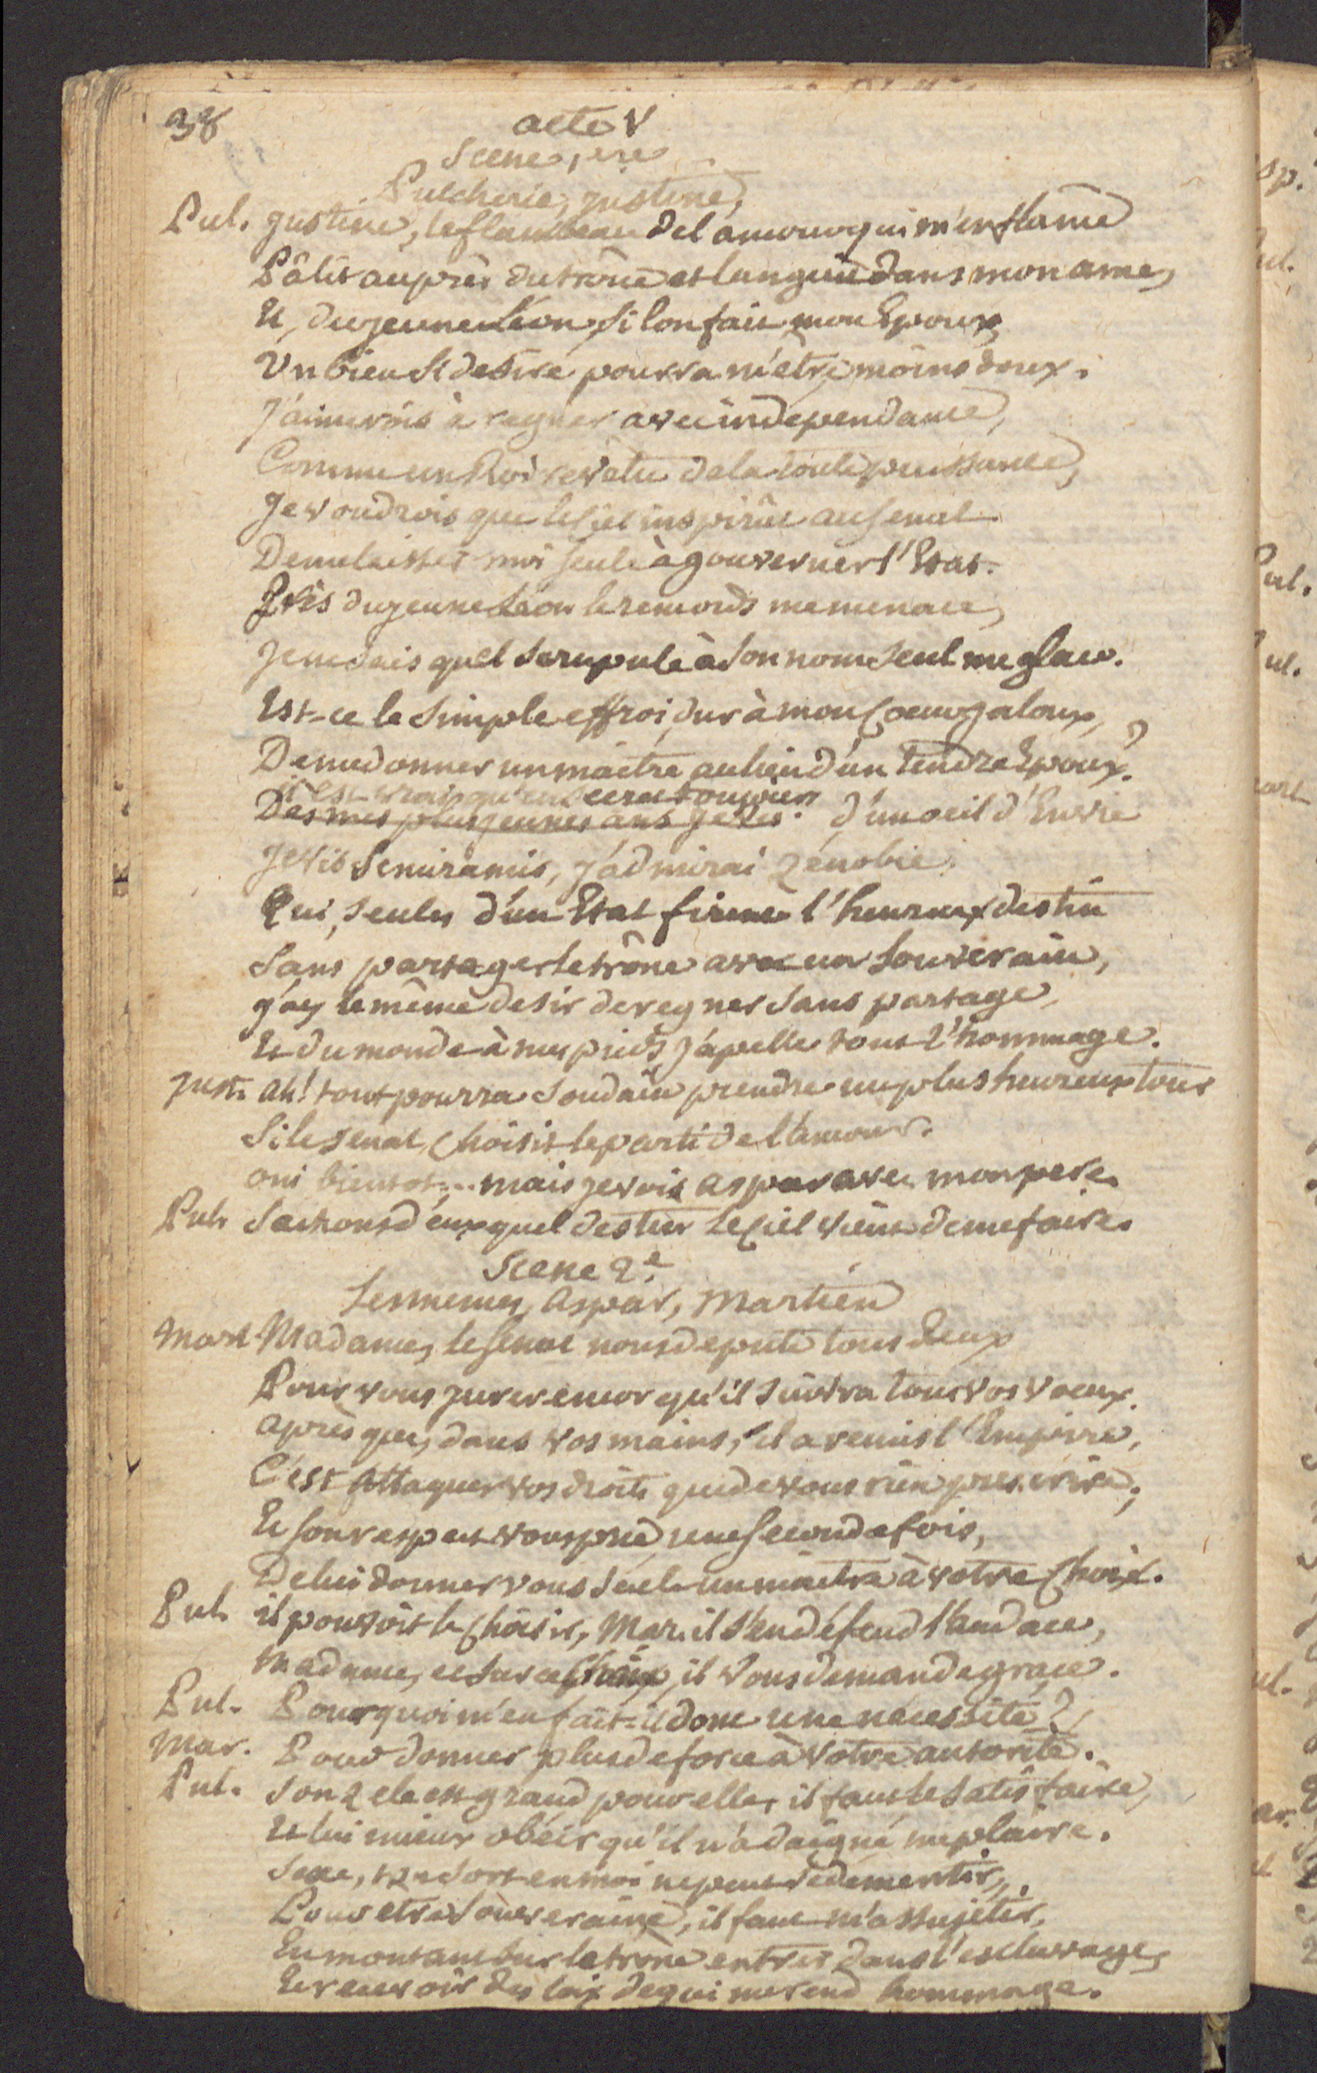 38
acte V
Scene, 1ere
Pulcherie, justine,
Pul. justine, le flambeau de l'amour qui m'enflame
Pâlit auprès du trône et languit dans mon ame,
Et, du jeune Léon, Si l'on fait mon Epoux,
Un bien Si desiré pourra m'être moins doux.
J'aimerois à regner avec independance,
Comme un Roi revêtu de la toute puissance,
Je voudrois que le Ciel inspirât au Senat
De me laisser moi seule à gouverner l'Etat.
Près du jeune Léon le remords me menace,
Je ne sais quel Scrupule à Son nom Seul me glace.
Est-ce le Simple effroi, dur à mon Coeur jaloux,
De me donner un maitre au lieu d'un tendre Epoux?
C'est vrai qu'en secret toujours
Dès mes plus jeunes ans je vis d'un oeil d'Envie
Je vis Semiramis, j'admirai Zénobie,
Qui, Seules d'un Etat firent l'heureux destin
Sans partager le trône avec un Souverain,
j'ay le même desir de regner Sans partage,
Et du monde à mes pieds j'apelle tout l'hommage.
just. ah! tout pourra Soudain prendre un plus heureux tour
Si le Senat Choisit le parti de l'amour.
oui bientot... mais je vois aspar avec mon pere.
Pul. Sachons d'eux quel destin le Ciel vient de me faire.
Scene 2e.
Les memes, Aspar, Martien
Mart. Madame, le Senat nous depute tous deux
Pour vous jurer encor qu'il Suivra tous vos voeux.
après que, dans vos mains, il a remis l'Empire,
C'est attaquer vos droits que de vous rien prescrire;
Et Son respect vous prie, une Seconde fois,
De lui donner vous Seule un maitre à votre Choix.
Pul. il pouvoit le Choisir, Mar. il S'en défend l'audace,
Madame, et Sur ce Choix, il vous demande grace.
Pul. Pourquoi m'en fait-il donc une necessité?
Mar. Pour donner plus de force à votre autorité.
Pul. Son zele est grand pour elle, il faut le Satisfaire,
Et lui mieux obéir qu'il n'a daigné me plaire.
Sexe, ton Sort en moi ne peut Se dementir,
Pour etre Souveraine, il faut m'assujetir,
En montant Sur le trone entrer dans l'esclavage,
Et recevoir des loix de qui me rend hommage.